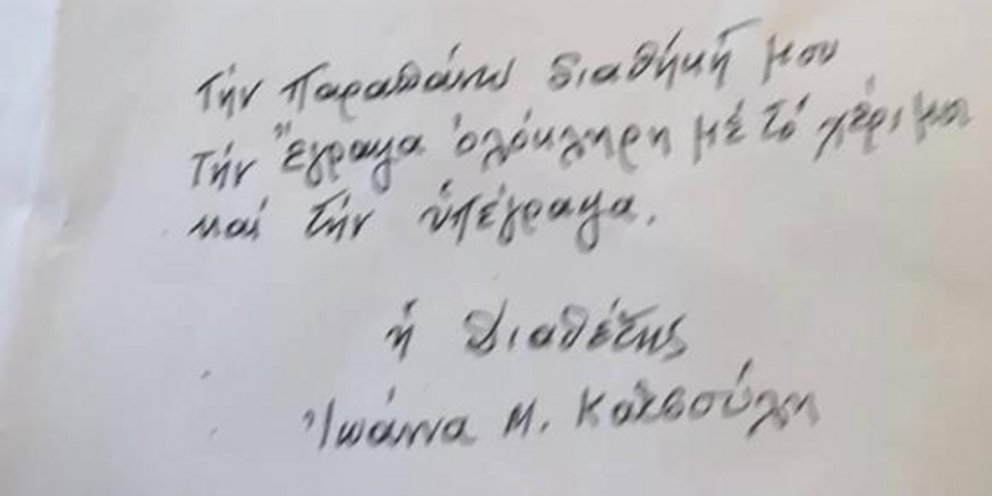 Τήν Παραπάνω διαθήκη μου
τήν ἔγραψα ὁλόκληρη μέ τό χέρι μου
καί τήν ὑπέγραψα.
ἡ Διαθέτης
Ἰωάννα Μ. Κατσούλη